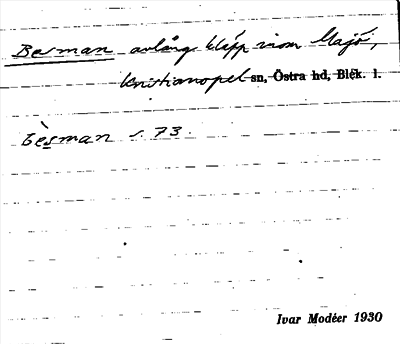 Besman avlång klipp inom Majö,
Kristianopel sn, Östra hd, Blek. l.
bèsman s. 73.
Ivar Modéer 1930